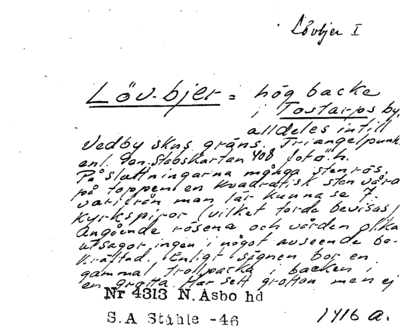 Lövbjer I
Löv-bjer = hög backe
i Tostarps by,
alldeles intill
Vedby skns gräns. Triangelpunkt
enl. Gen. Stabskartan 408 fot ö. h.
På sluttningarna många stenrös,
på toppen en kvadratisk sten vård
varifrån man lär kunna se 7
kyrkspiror (vilket torde bevisas)
Angående rösena och vården olika
utsagor, ingen i något avseende be-
kräftad. Enligt sägnen bor en
gammal trollpacka i backen i
en grotta. Har sett grottan men ej
Nr 4313 N. Åsbo hd
S.A Stihle -46 1416 a.